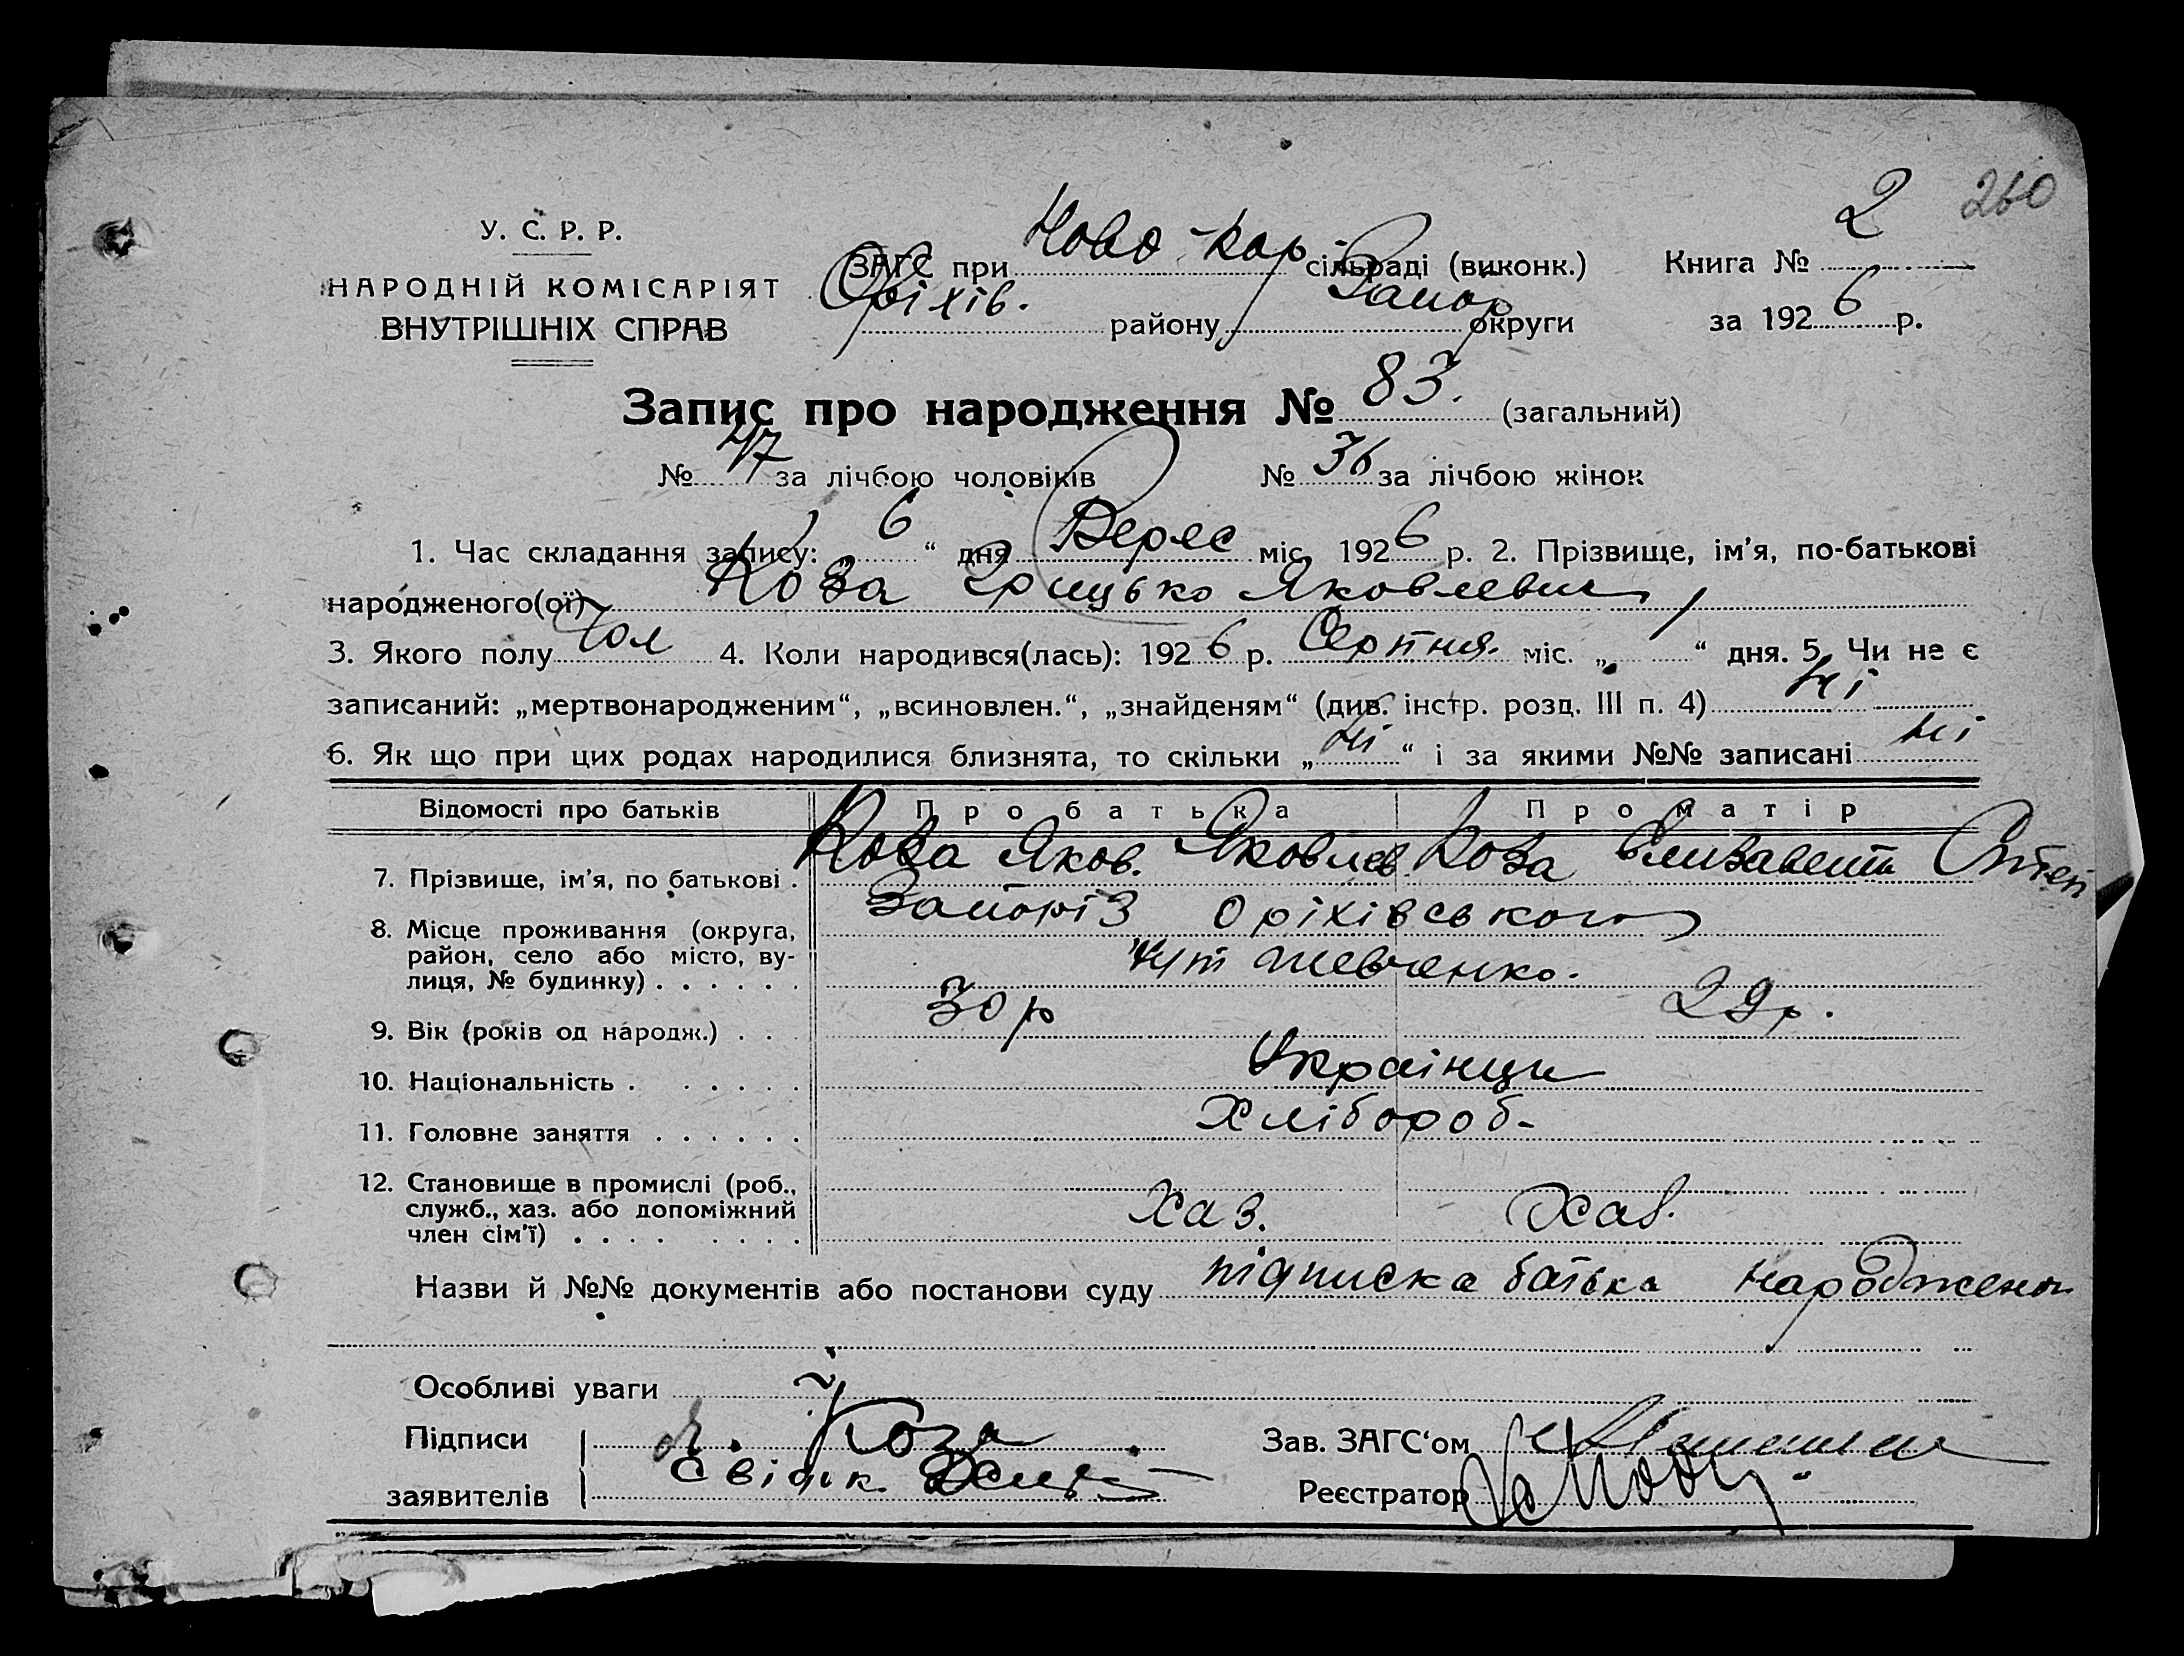 2 260
У. С. Р. Р.
НАРОДНІЙ КОМІСАРІЯТ
ВНУТРІШНІХ СПРАВ
ЗАГС при Ново-Кар. сільраді (виконк.)
Оріхів. району Запор округи
Книга № 2
за 1926 р.
Запис про народження № 83. (загальний)
№ 47 за лічбою чоловіків № 36 за лічбою жінок
1. Час складання запису: „ 6 “ дня Верес міс. 1926 р. 2. Прізвище, ім’я, по-батькові
народженого(ої) Коза Грицько Яковлевич
3. Якого полу Чол 4. Коли народився(лась): 1926 р. Серпня. міс. „ “ дня. 5. Чи не є
записаний: „мертвонародженим“, „всиновлен.“, „знайденям“ (див. інстр. розд. III п. 4) Ні
6. Як що при цих родах народилися близнята, то скільки „ Ні “ і за якими №№ записані Ні
Відомості про батьків Про батька Про матір
7. Прізвище, ім’я, по батькові . Коза Яков. Яковлев. Коза Єлизавета Степ
8. Місце проживання (округа, Запоріз Оріхівського
район, село або місто, ву- хут Шевченко.
лиця, № будинку) . . . . . .
9. Вік (років од народж.) . . 30 р 29 р.
10. Національність . . . . . . Українци
11. Головне заняття . . . . . . Хлібороб-
12. Становище в промислі (роб.,
служб., хаз. або допоміжний Хаз. Хаз.
член сім’ї) . . . . . . . .
Назви й №№ документів або постанови суду підписка батька народжено
Особливі уваги
Підписи Я. Коза Зав. ЗАГС‘ом
заявителів Свідк. Реєстратор